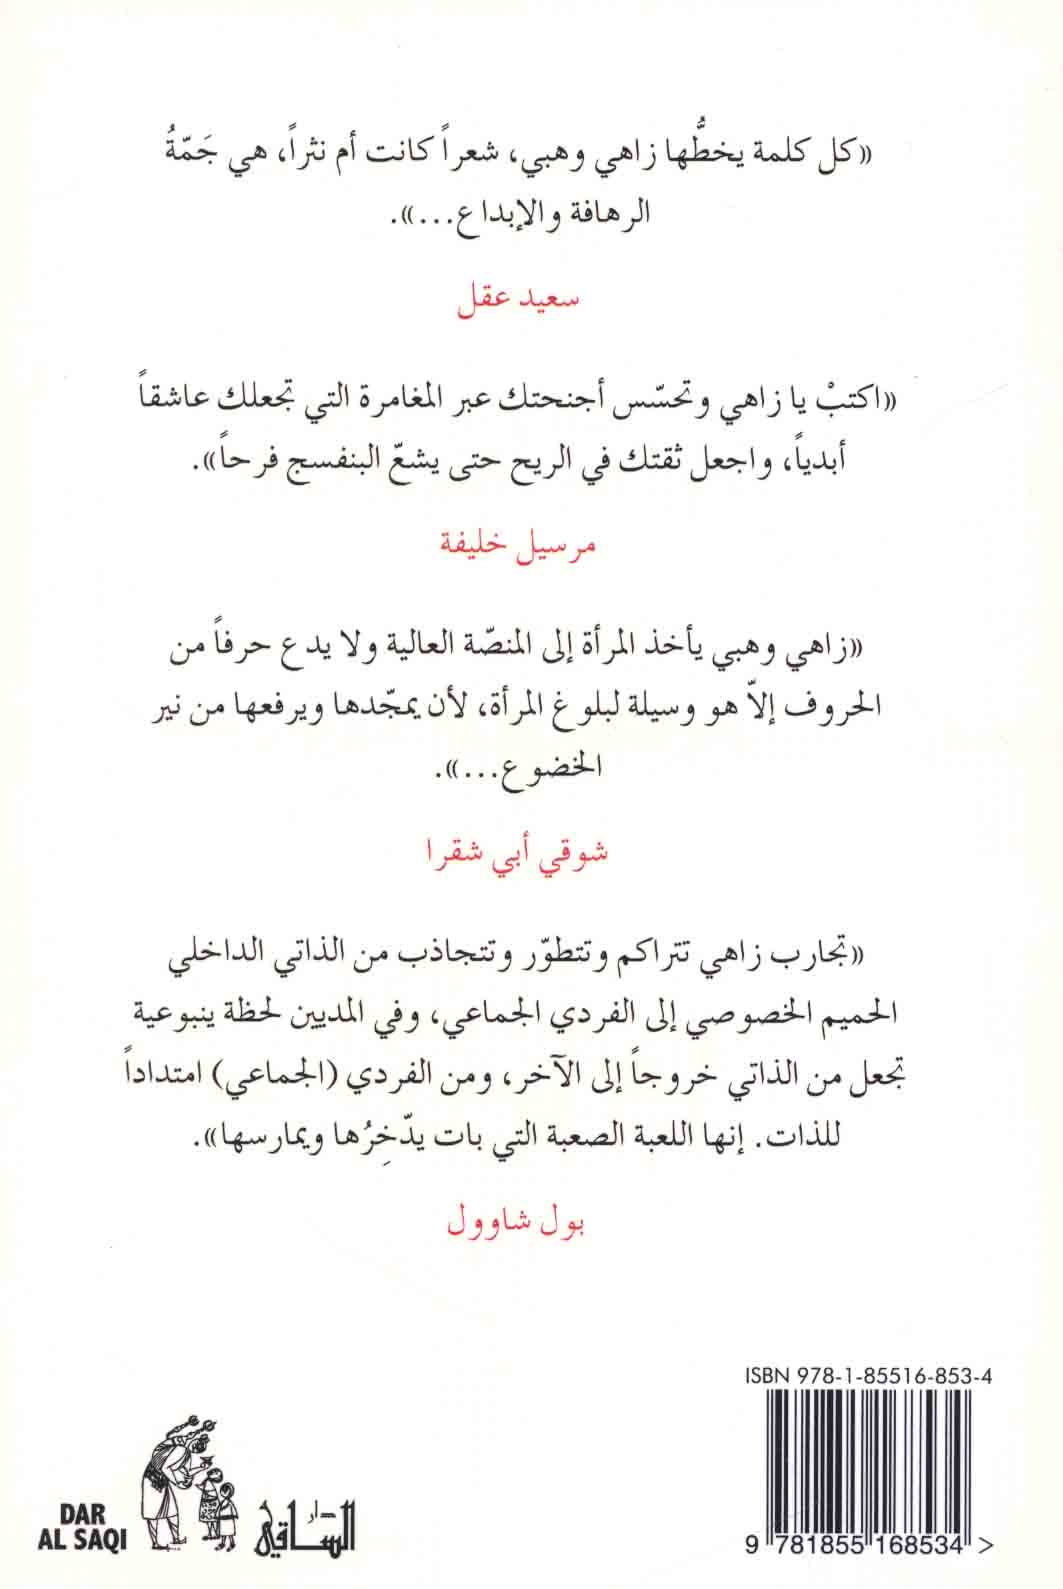 «كل كلمة يخطُّها زاهي وهبي، شعراً كانت أم نثراً، هي جَمّةُ
الرهافة والإبداع...».
سعيد عقل
«اكتبْ يا زاهي وتحسّس أجنحتك عبر المغامرة التي تجعلك عاشقاً
أبدياً، واجعل ثقتك في الريح حتى يشعّ البنفسج فرحاً».
مرسيل خليفة
«زاهي وهبي يأخذ المرأة إلى المنصّة العالية ولا يدع حرفاً من
الحروف إلاّ هو وسيلة لبلوغ المرأة، لأن يمجّدها ويرفعها من نير
الخضوع...».
شوقي أبي شقرا
«تجارب زاهي تتراكم وتتطوّر وتتجاذب من الذاتي الداخلي
الحميم الخصوصي إلى الفردي الجماعي، وفي المديين لحظة ينبوعية
تجعل من الذاتي خروجاً إلى الآخر، ومن الفردي (الجماعي) امتداداً
للذات. إنها اللعبة الصعبة التي بات يدّخِرُها ويمارسها».
بول شاوول
ISBN 978-1-85516-853-4
9 781855 168534 >
دار
الساقي
DAR
AL SAQI